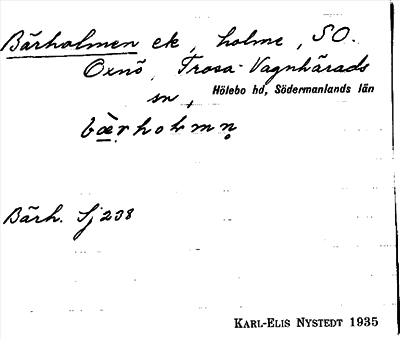 Bärholmen ek, holme, SO.
Oxnö, Trosa-Vagnhärads
sn,
Hölebo hd, Södermanlands län
bæ̀rholmn̥
Bärh. Sj 238
KARL-ELIS NYSTEDT 1935